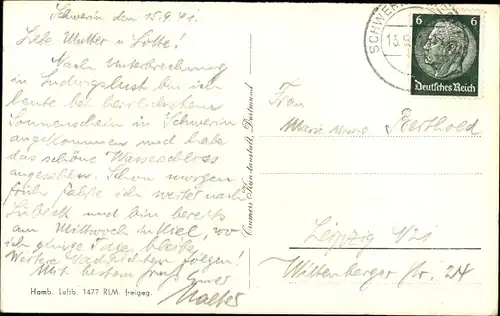 Schwerin den 15.9.41.
Liebe Mutter u Lotte!
Nach Unterbrechung
in Ludwigslust bin ich
heute bei herrlichstem
Sonnenschein in Schwerin
angekommen und habe
das schöne Wasserschloss
angesehen. Schon morgen
früh fahre ich weiter nach
Lübeck und bin bereits
am Mittwoch in Kiel, wo
ich einige Tage bleibe.
Weitere Nachrichten folgen!
Mit bestem Gruß Euer
Walter
Hamb. Luftb. 1477 RLM. freigeg.
Cramers Kunstanstalt, Dortmund
SCHWER
6 6
Deutsches Reich
Frau
Marie Berthold
Leipzig N21
Wittenberger Str. 24